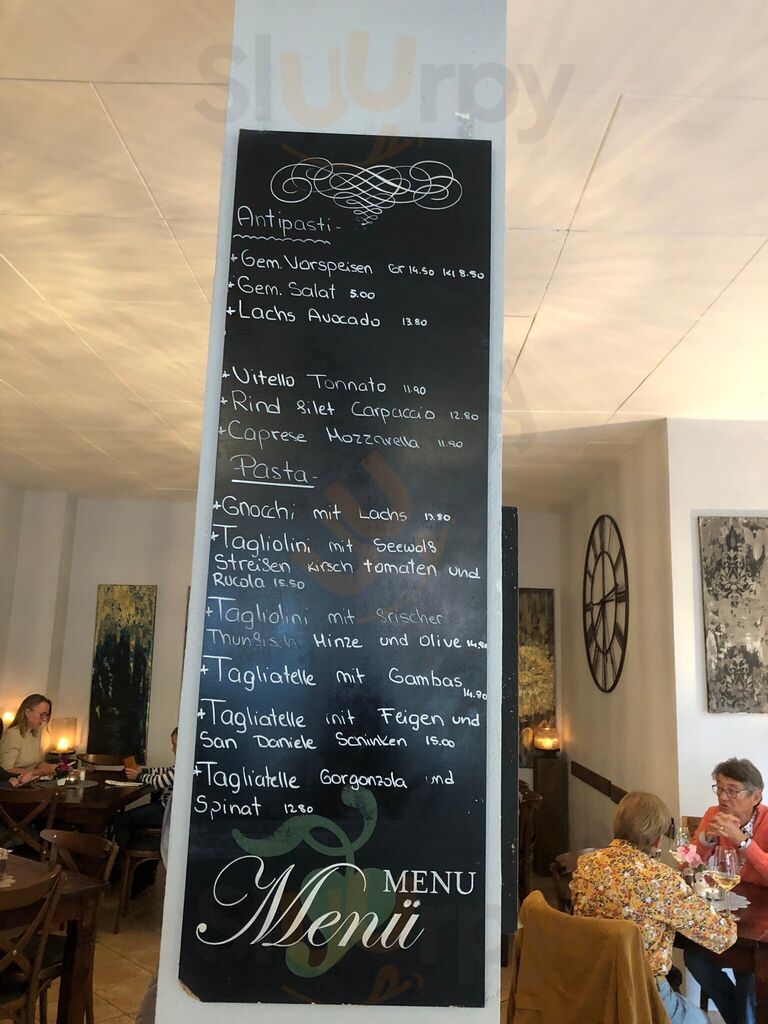 Sluurpy
Antipasti-
+ Gem. Vorspeisen Gr 14.50 kl 8.50
+ Gem. Salat 5.00
+ Lachs Avocado 13.80
+ Vitello Tonnato 11.90
+ Rind filet Carpaccio 12.80
+ Caprese Mozzarella 11.90
Pasta-
+ Gnocchi mit Lachs 13.80
+ Tagliolini mit Seewolf
Streifen Kirsch tomaten und
Rucola 15.50
+ Tagliolini mit frischer
Thunfisch Minze und Olive 14.80
+ Tagliatelle mit Gambas
14.80
+ Tagliatelle mit Feigen und
San Daniele Schinken 15.00
+ Tagliatelle Gorgonzola und
Spinat 12.80
MENU
Menü
Sluurpy